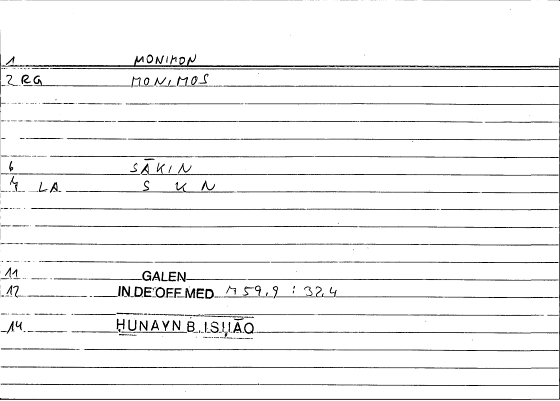 1 MONIMON
2 RG MONIMOS
6 SĀKIN
4 LA S K N
11 GALEN
12 IN DE OFF MED M 59,9 : 32,4
14 ḤUNAYN B. ISḤĀQ